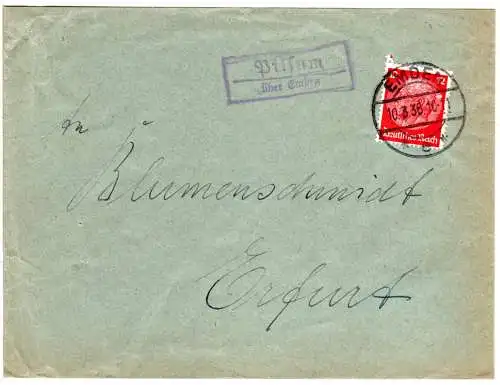 Pilsum
über Emden
EMDEN
10.3.38
12
Deutsches Reich
An
Blumenschmidt
Erfurt